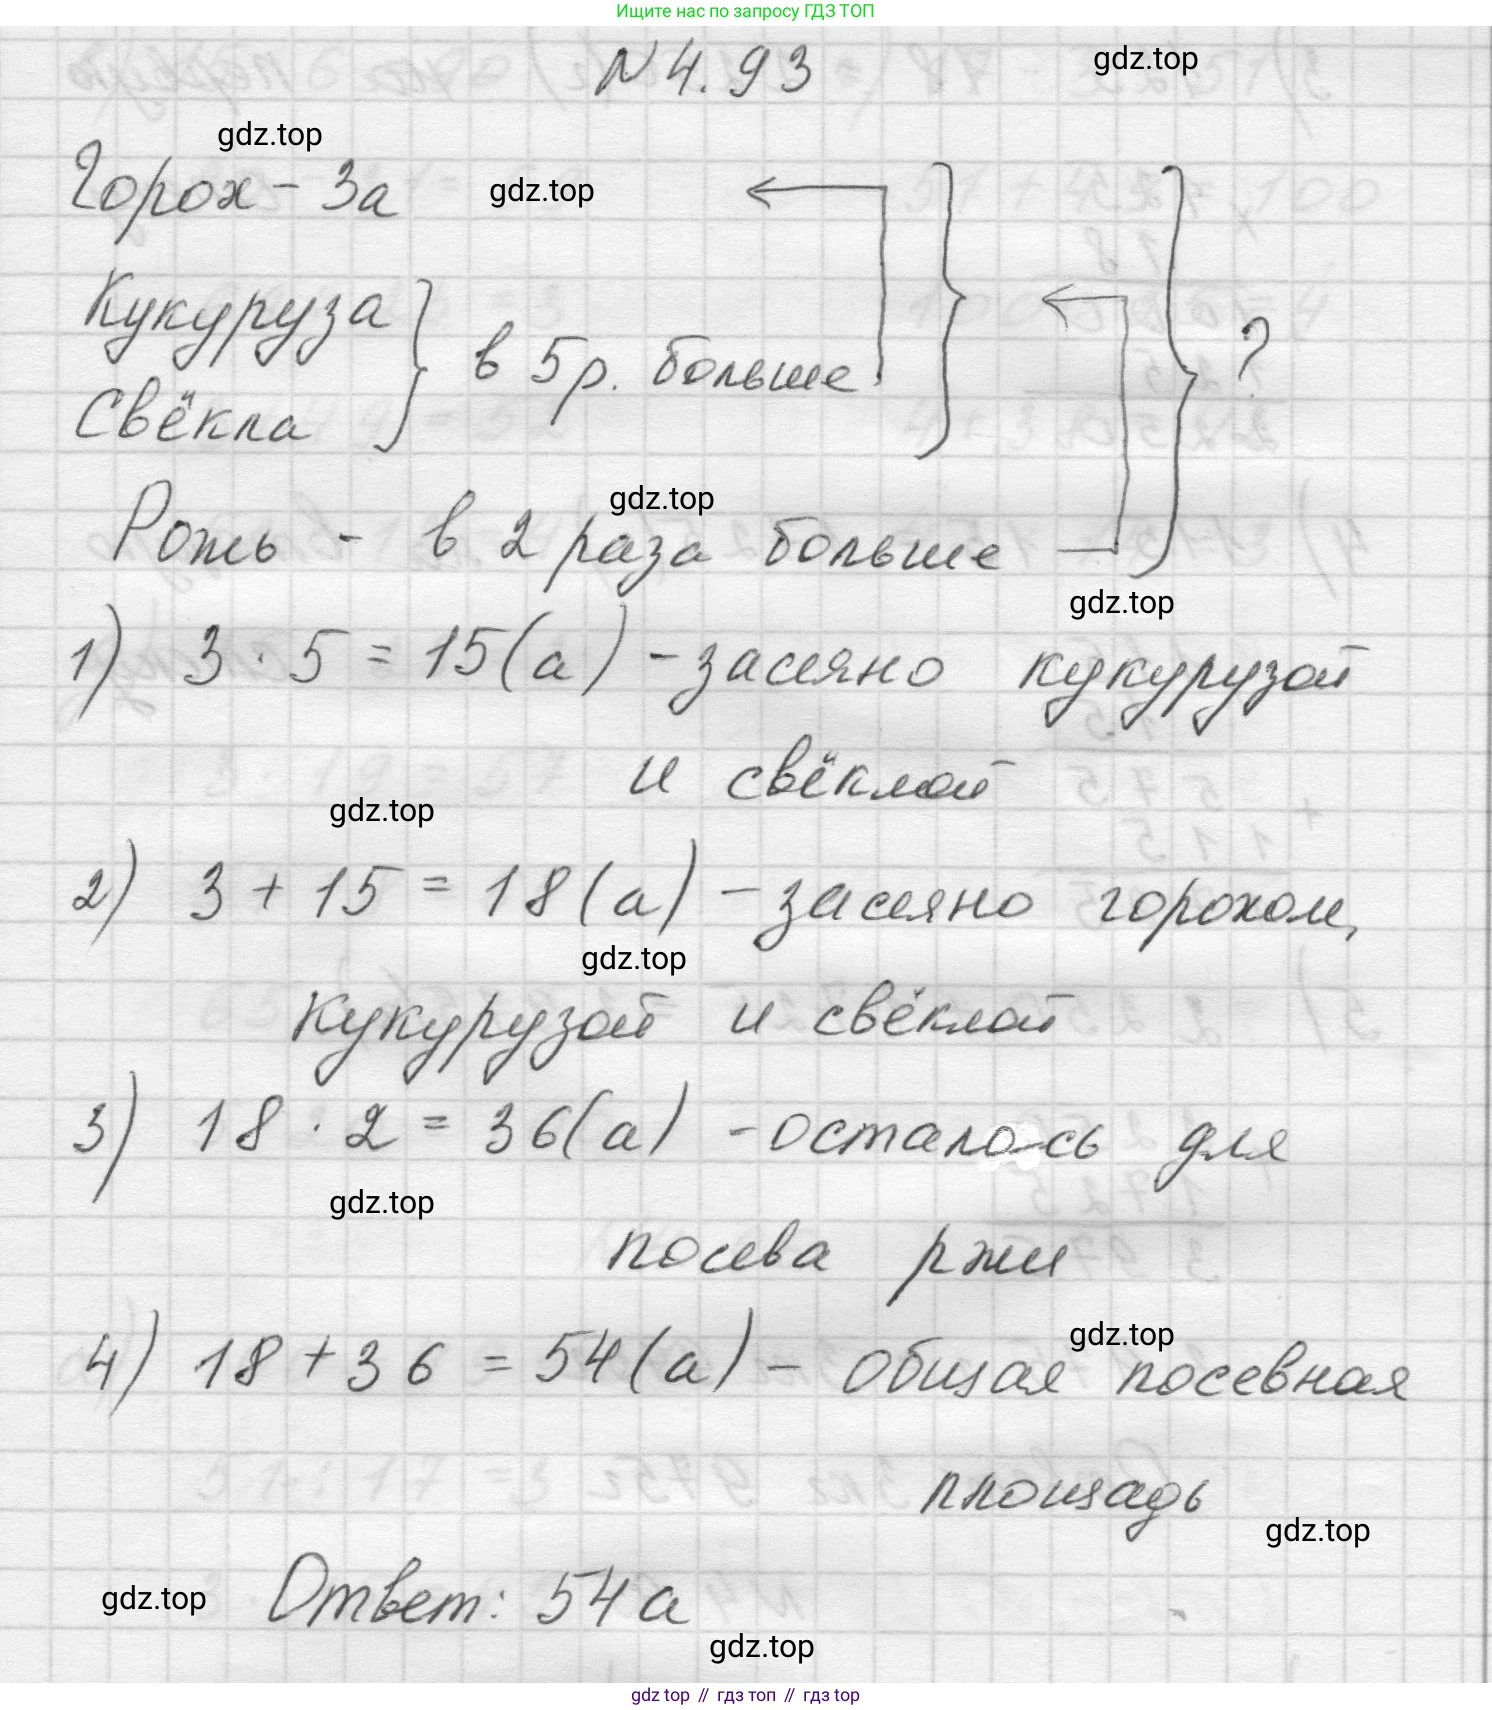 Ищите нас по запросу ГДЗ ТОП
№ 4.93
gdz.top
gdz.top
Горох - 3а
gdz.top
Кукуруза
Свёкла
в 5 р. больше
?
gdz.top
Рожь - в 2 раза больше
gdz.top
1) 3 · 5 = 15 (а) - засеяно кукурузой
и свёклой
gdz.top
2) 3 + 15 = 18 (а) - засеяно горохом,
gdz.top
кукурузой и свёклой
3) 18 · 2 = 36 (а) - осталось для
gdz.top
посева ржи
gdz.top
4) 18 + 36 = 54 (а) - общая посевная
площадь
gdz.top
gdz.top
Ответ: 54 а
gdz.top
gdz top // гдз топ // gdz top